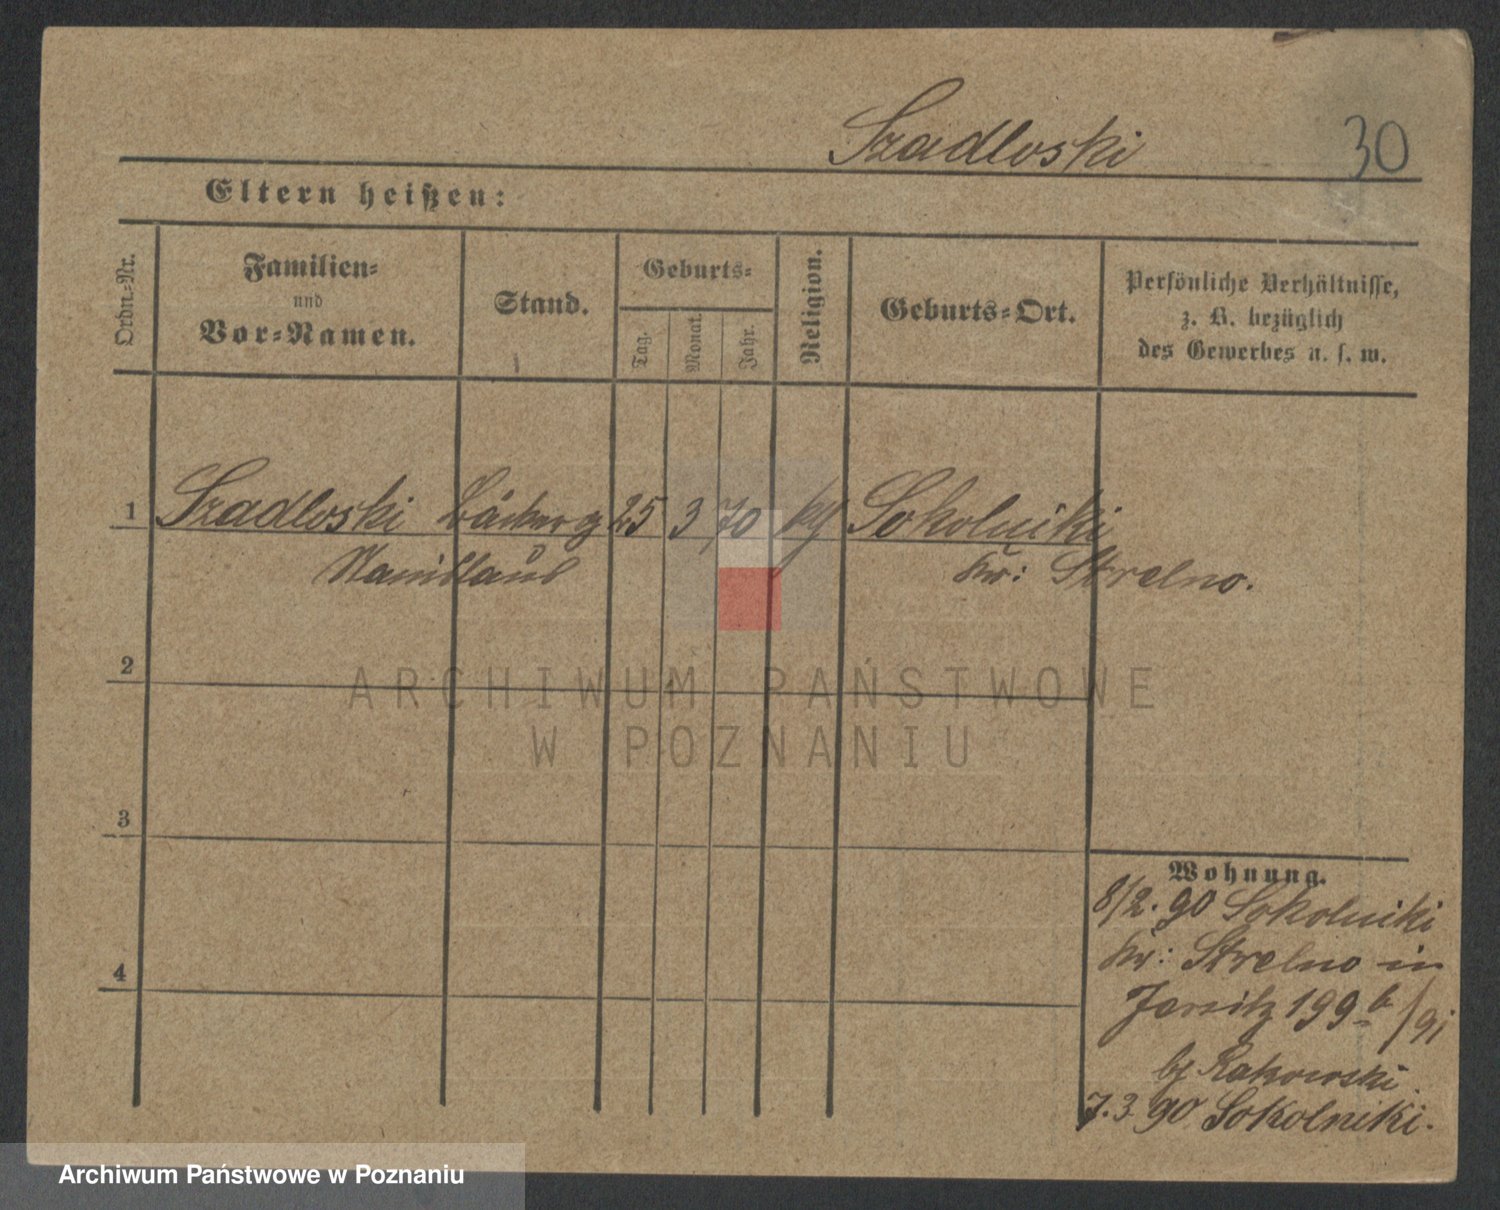 Szadloski 30
Eltern heißen:
Ordn.-Nr.
Familien-
und
Vor-Namen.
Stand.
Geburts-
Tag.
Monat.
Jahr.
Religion.
Geburts-Ort.
Persönliche Verhältnisse,
z. B. bezüglich
des Gewerbes u. s. w.
1 Szadloski 25 3 70 Sokolniki
Stanislaus Kr: Strelno.
2
3
4
Wohnung.
8/2. 90 Sokolniki
Kr: Strelno in
Jersitz 199 b/91
Rakowski
7.3 90 Sokolniki.
ARCHIWUM PAŃSTWOWE
W POZNANIU
Archiwum Państwowe w Poznaniu